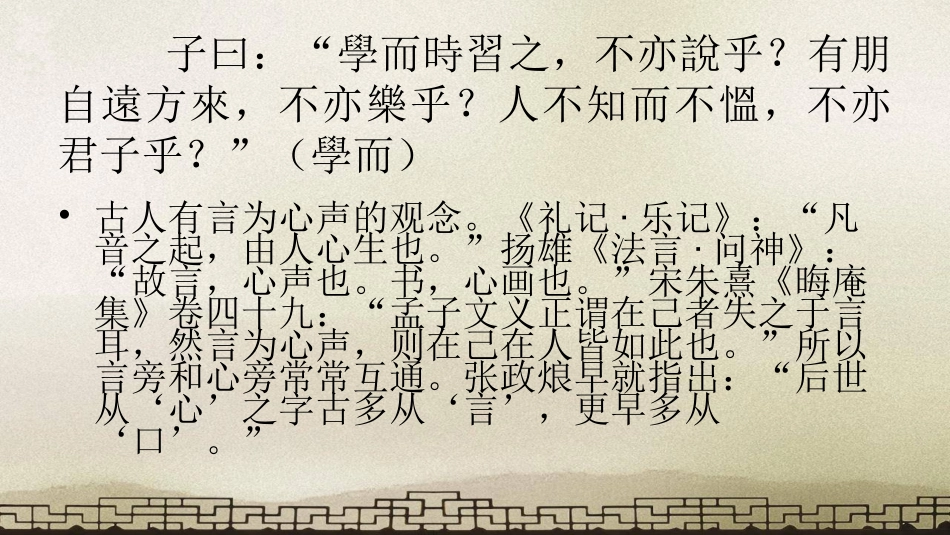 子曰：“學而時習之，不亦說乎？有朋
自遠方來，不亦樂乎？人不知而不慍，不亦
君子乎？”（學而）
• 古人有言为心声的观念。《礼记·乐记》：“凡
音之起，由人心生也。”扬雄《法言·问神》：
“故言，心声也。书，心画也。”宋朱熹《晦庵
集》卷四十九：“孟子文义正谓在己者失之于言
耳，然言为心声，则在己在人皆如此也。”所以
言旁和心旁常常互通。张政烺早就指出：“后世
从‘心’之字古多从‘言’，更早多从
‘口’。”